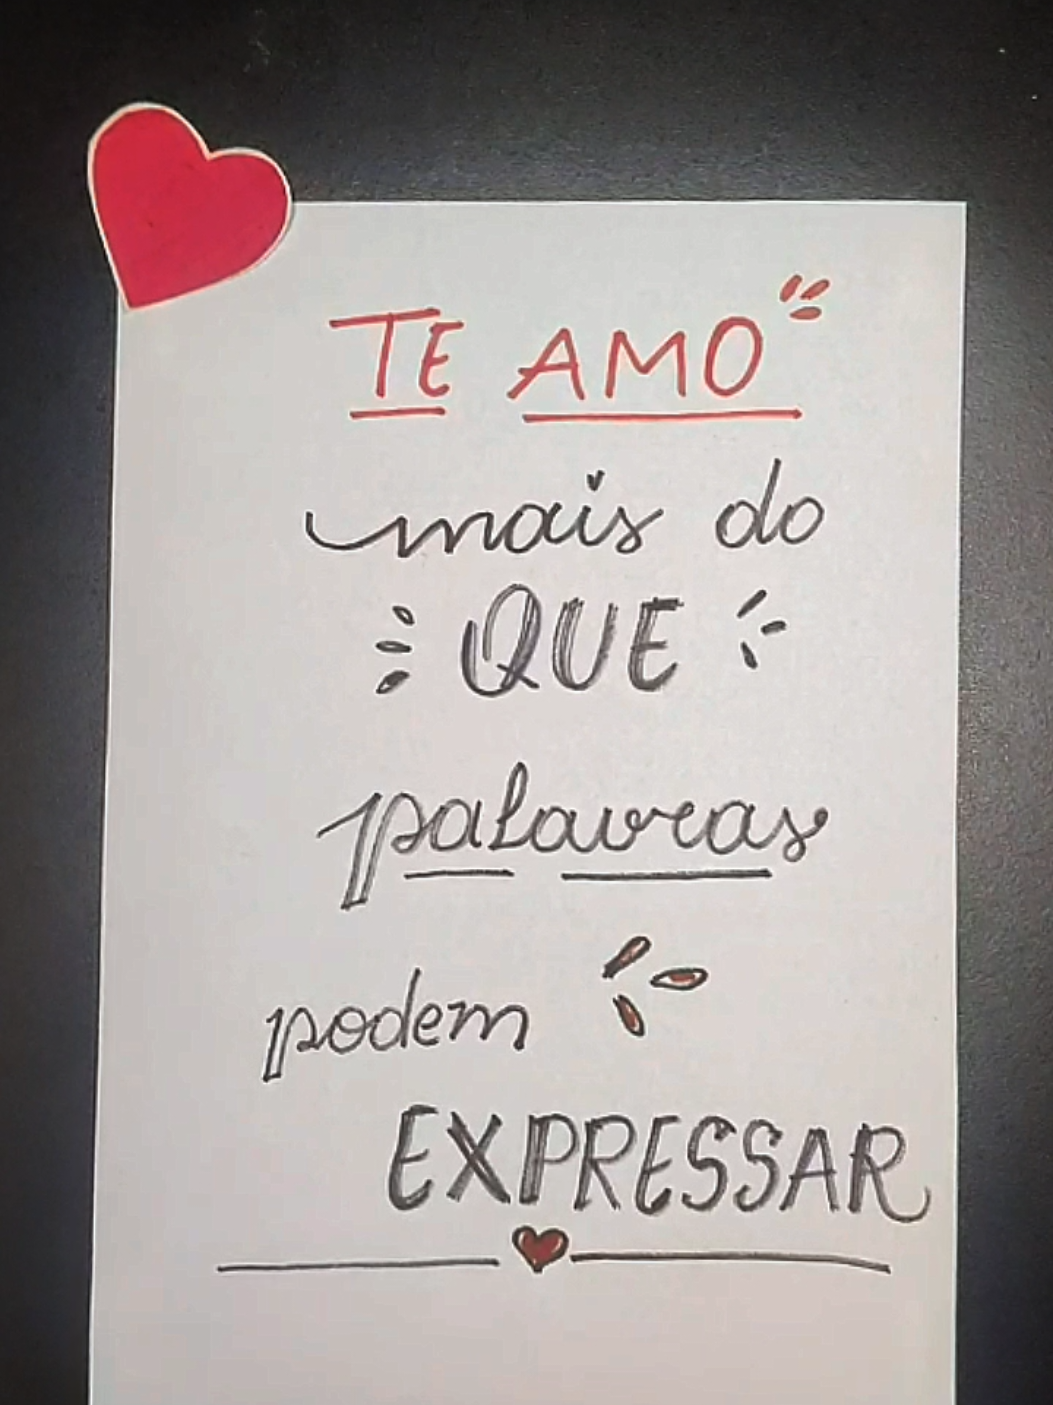 TE AMO
mais do
QUE
palavras
podem
EXPRESSAR